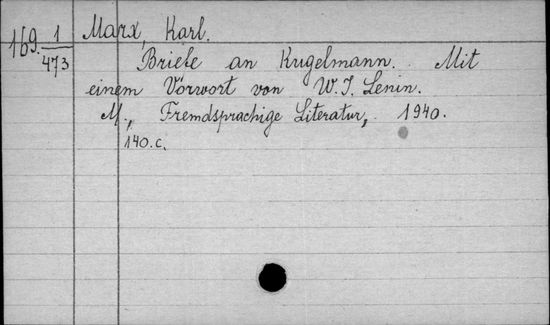 Marx, Karl.
169. 1/473
Briefe an Kugelmann. Mit
einem Vorwort von W. I. Lenin.
M., Fremdsprachige Literatur, 1940.
140.c.